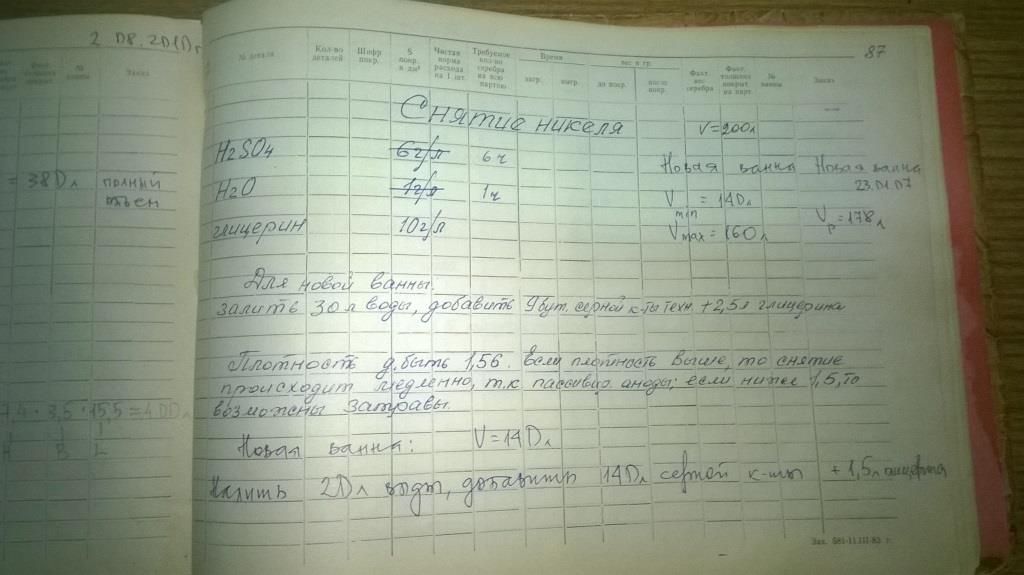 2 08.2010г
№ ванны
Заказ
= 380л полный
7,4 · 3,5 · 15,5 = 400л
H B L
87
№ детали
Кол-во деталей
Шифр покр.
S покр. в дм²
Чистая норма расхода на 1 шт.
Требуемое кол-во серебра на всю партию
Время
загр.
выгр.
вес в гр.
до покр.
после покр.
Факт. вес серебра
Факт. толщина покрыт. на парт.
№ ванны
Заказ
Снятие никеля V=200л
H2SO4 6г/л 6ч Новая ванна Новая ванна
23.01.07
H2O 1г/л 1ч V min = 140л Vp=178л
глицерин 10г/л Vmax=160л
Для новой ванны.
залить 30л воды, добавить 9бут. серной к-ты техн. +2,5л глицерина
Плотность д.быть 1,56. Если плотность выше, то снятие
происходит медленно, т.к. пассивир аноды; если ниже 1,5, то
возможны затравы.
Новая ванна: V=140л
Налить 20л воды, добавить 140л серной к-ты +1,5л глицерина
Зак. 581-11.III-83 г.